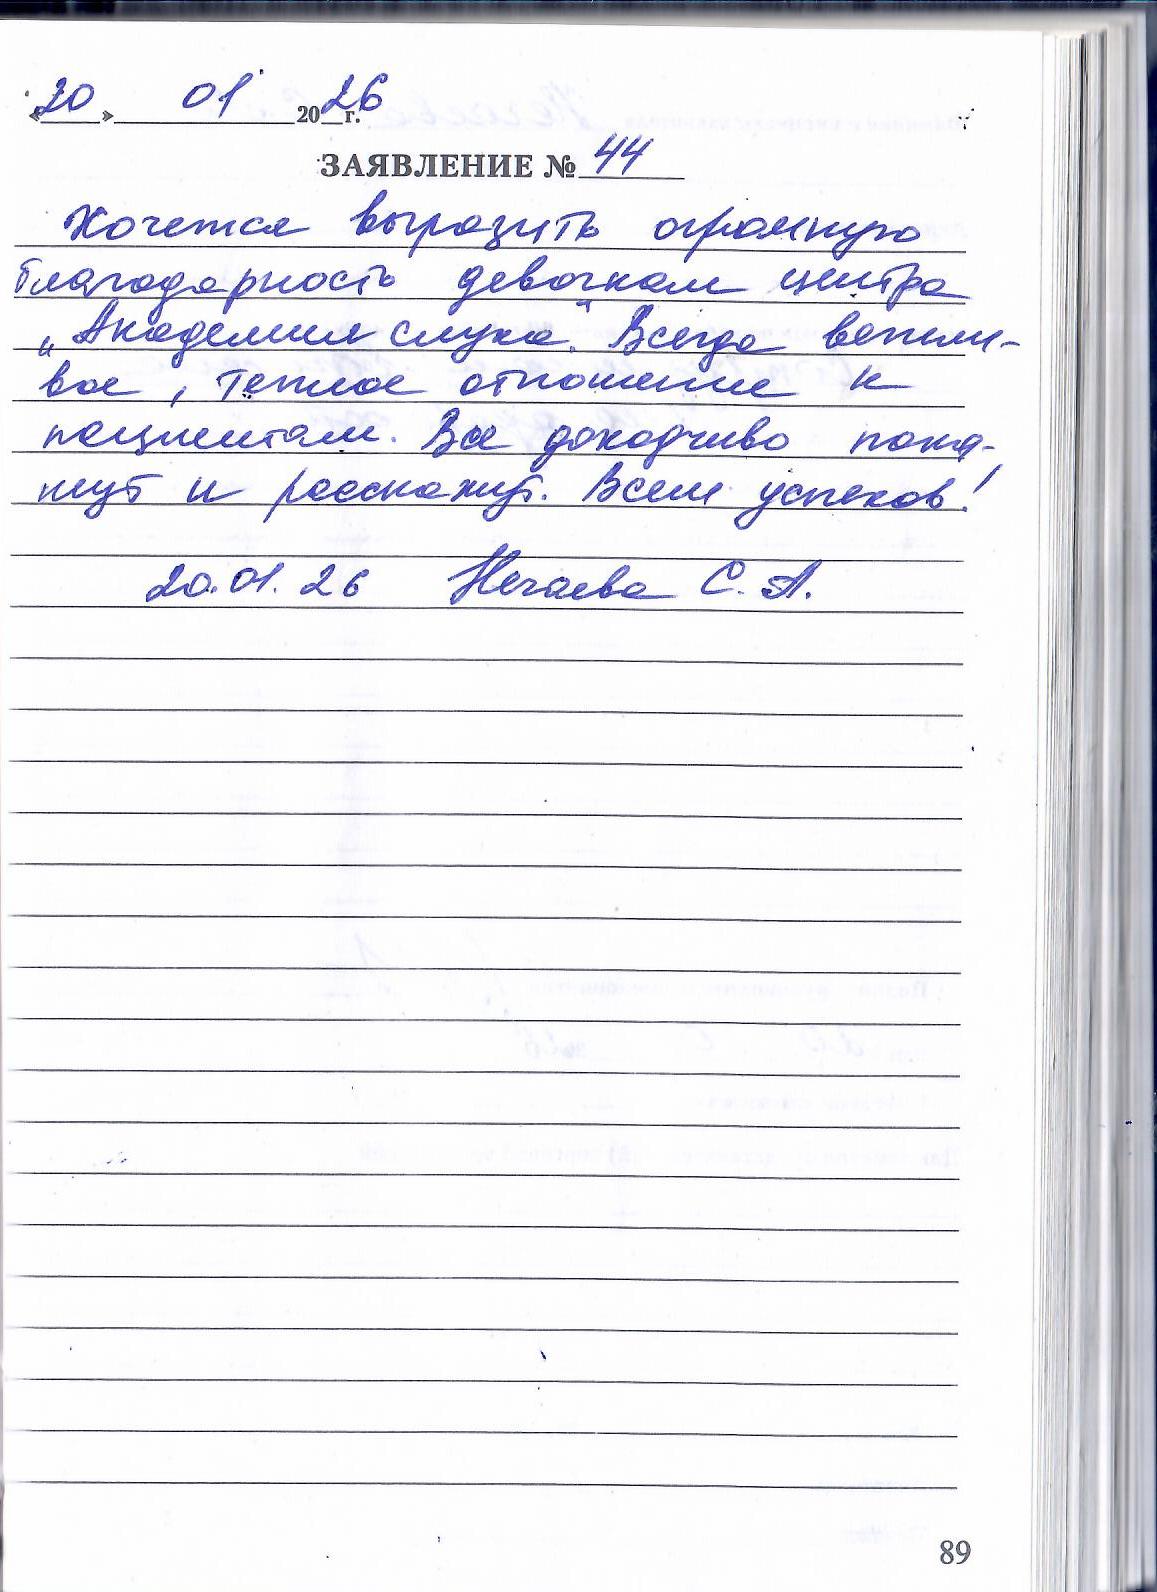 «20» 01 2026 г.
ЗАЯВЛЕНИЕ № 44
Хочется выразить огромную
благодарность девочкам центра
„Академия слуха". Всегда вежли-
вое, теплое отношение к
пациентам. Все доходчиво пока-
жут и расскажут. Всем успехов!
20.01.26 Нечаева С. А.
89